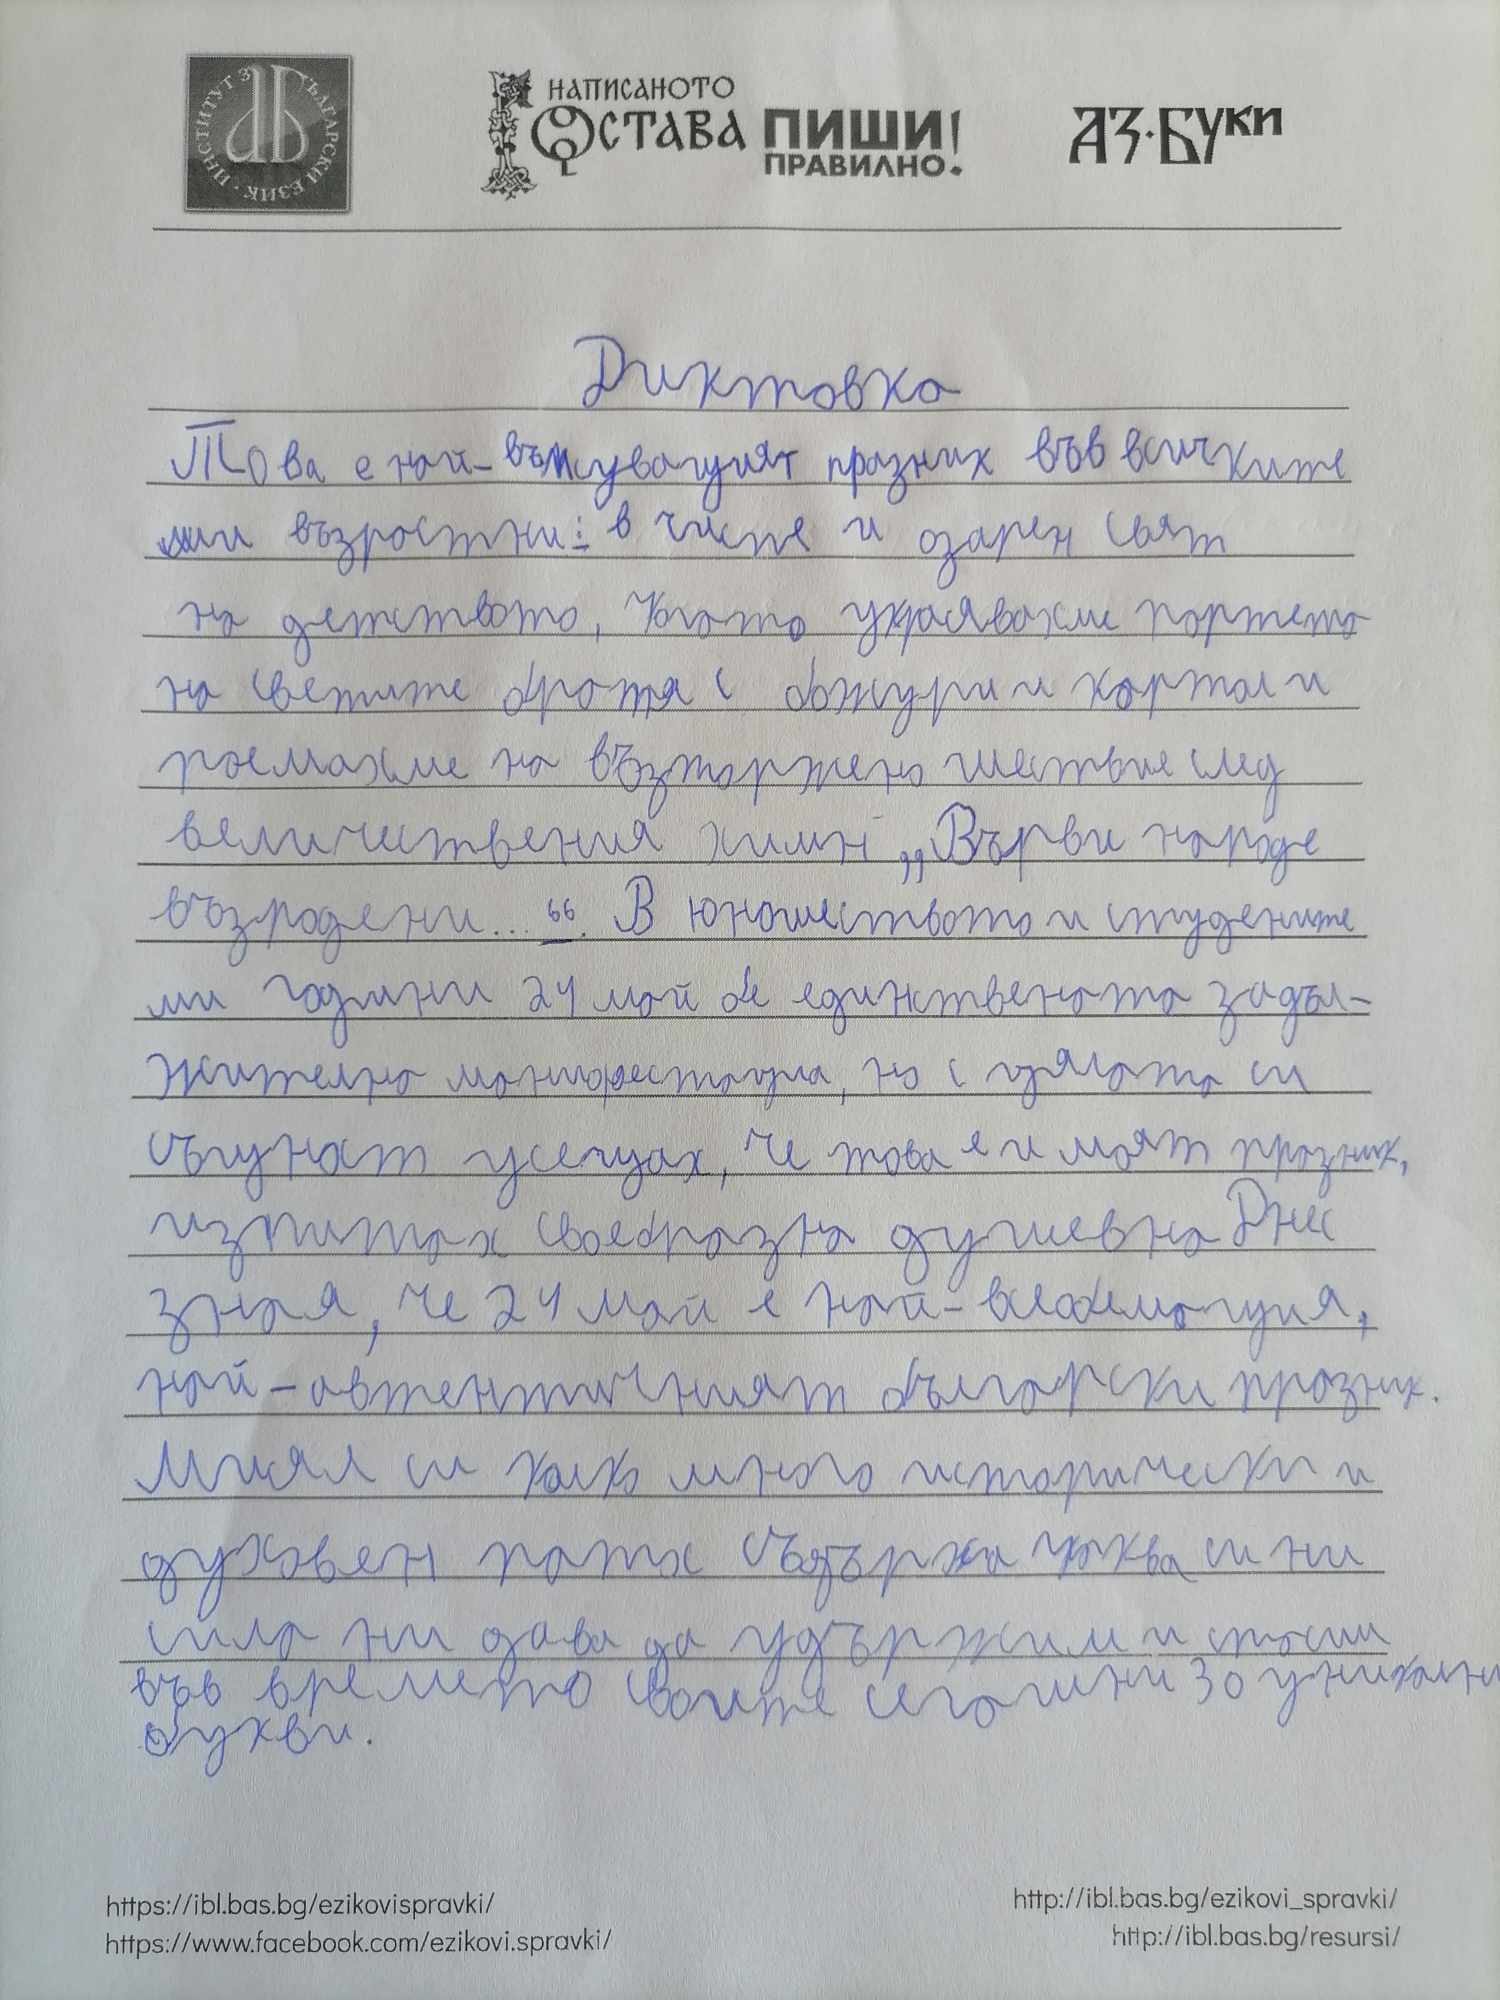 ИНСТИТУТ ЗА БЪЛГАРСКИ ЕЗИК
НАПИСАНОТО
ОСТАВА ПИШИ
ПРАВИЛНО!
АЗ·БУКИ
Диктовка
Това е най- празник във всичките
ми възрастни: в чистие и озарен свят
на детството, когато украсявахме портрета
на светите братя с божури и картаи и
поемахме на възторжено шествие след
величествения химн „Върви народе
възродени...“. В юношеството и студените
ми години 24 май бе единствената задъл-
жително манифестация, но с цялата си
същност усещах, че това е и моят празник,
изпитах своеобразна душевна Днес
зная, че 24 май е най-всеобемащия,
най-автентичният български празник.
Мисял си колко много исторически и
духовен патос съдържа каква си ни
сила ни дава да удържим и спасим
във времето своите сегашни 30 уникални
букви.
https://ibl.bas.bg/ezikovispravki/
http://ibl.bas.bg/ezikovi_spravki/
https://www.facebook.com/ezikovi.spravki/
http://ibl.bas.bg/resursi/